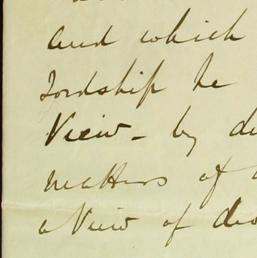 and which
Lordship he
View - by
matters of
a View of